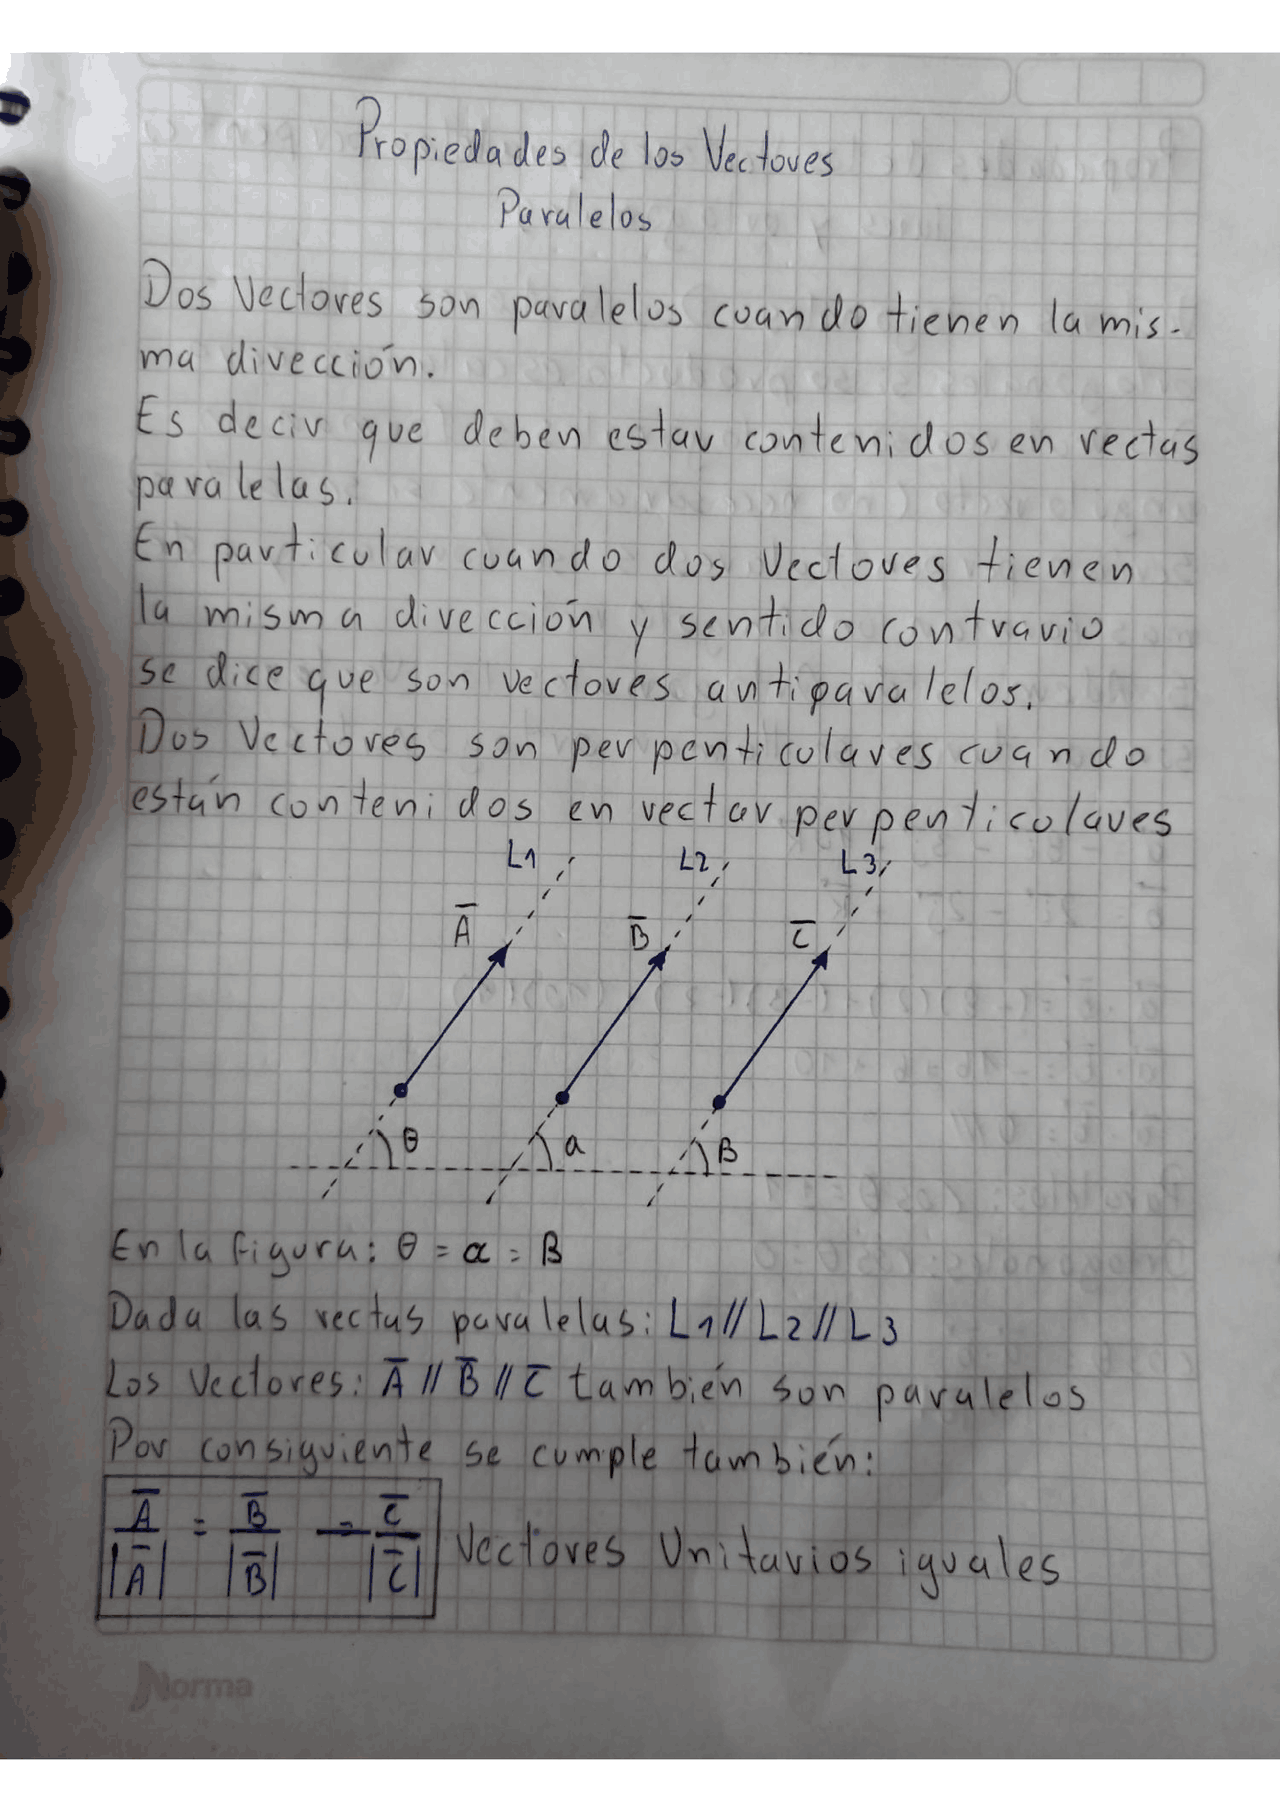 Propiedades de los Vectores
Paralelos
Dos Vectores son paralelos cuando tienen la mis-
ma dirección.
Es decir que deben estar contenidos en rectas
paralelas.
En particular cuando dos Vectores tienen
la misma dirección y sentido contrario
se dice que son vectores antiparalelos.
Dos Vectores son perpenticulares cuando
están contenidos en vectar perpenticolares
L1 L2 L3
A̅ B̅ C̅
θ a B
En la figura: θ = α = B
Dada las rectas paralelas: L1//L2//L3
Los Vectores: A̅ // B̅ // C̅ también son paralelos
Por consiguiente se cumple también:
A̅/|A̅| = B̅/|B̅| = C̅/|C̅| Vectores Unitarios iguales
Norma